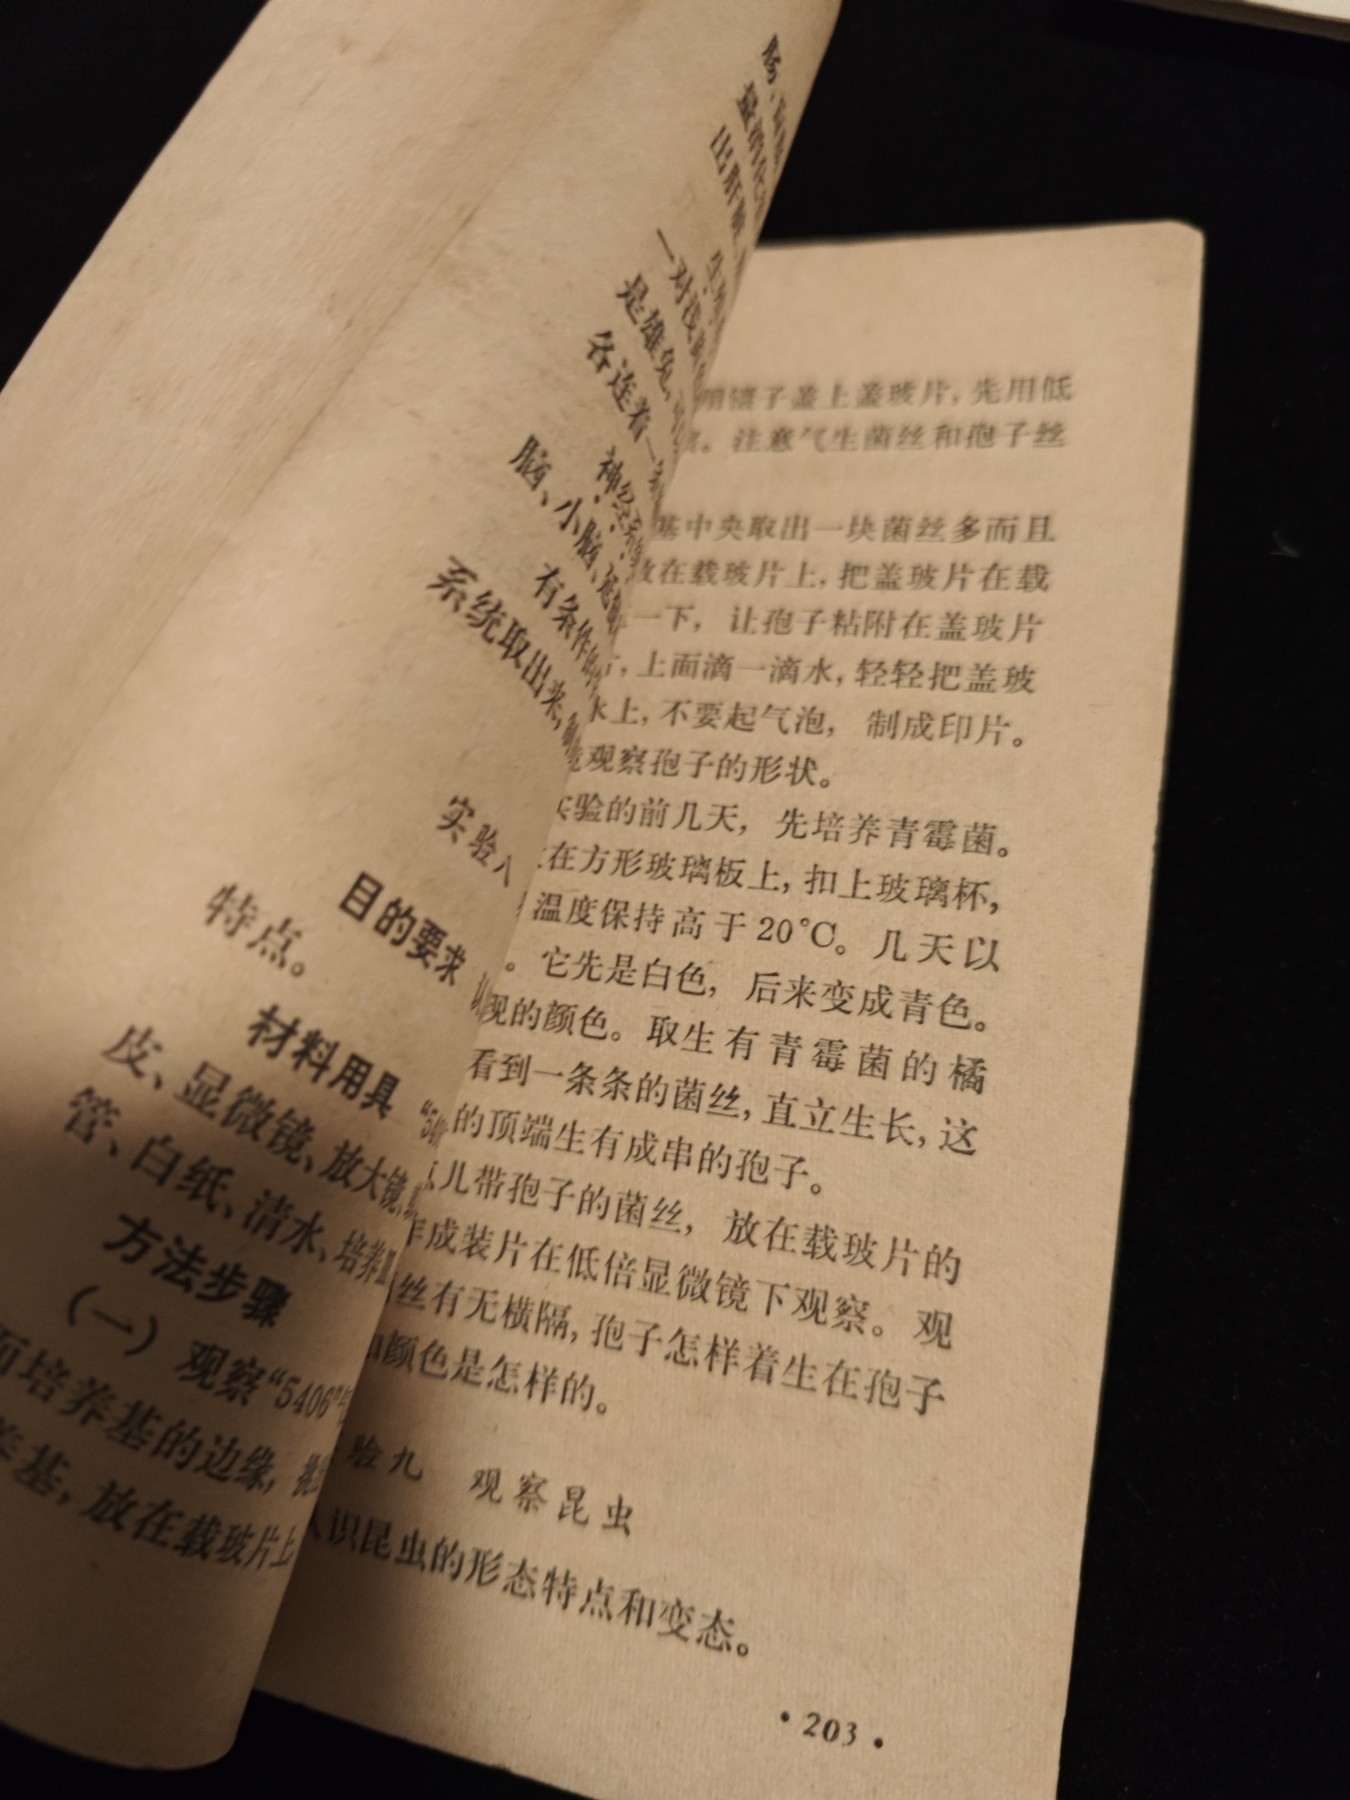 一对
是雄兔,
各连着一
神经系
脑、小脑、
有条件的
系统取出来,
实验八
目的要求
特点。
材料用具 “54
皮、显微镜、放大镜、
管、白纸、清水、培养皿
方法步骤
(一) 观察“5406”
面培养基的边缘,
养基, 放在载玻片上
用镊子盖上盖玻片, 先用低
察。注意气生菌丝和孢子丝
基中央取出一块菌丝多而且
放在载玻片上, 把盖玻片在载
一下, 让孢子粘附在盖玻片
, 上面滴一滴水, 轻轻把盖玻
水上, 不要起气泡, 制成印片。
观察孢子的形状。
实验的前几天, 先培养青霉菌。
在方形玻璃板上, 扣上玻璃杯,
温度保持高于20℃。几天以
。它先是白色, 后来变成青色。
现的颜色。取生有青霉菌的橘
看到一条条的菌丝, 直立生长, 这
的顶端生有成串的孢子。
点儿带孢子的菌丝, 放在载玻片的
作成装片在低倍显微镜下观察。观
丝有无横隔, 孢子怎样着生在孢子
和颜色是怎样的。
验九 观察昆虫
认识昆虫的形态特点和变态。
• 203 •